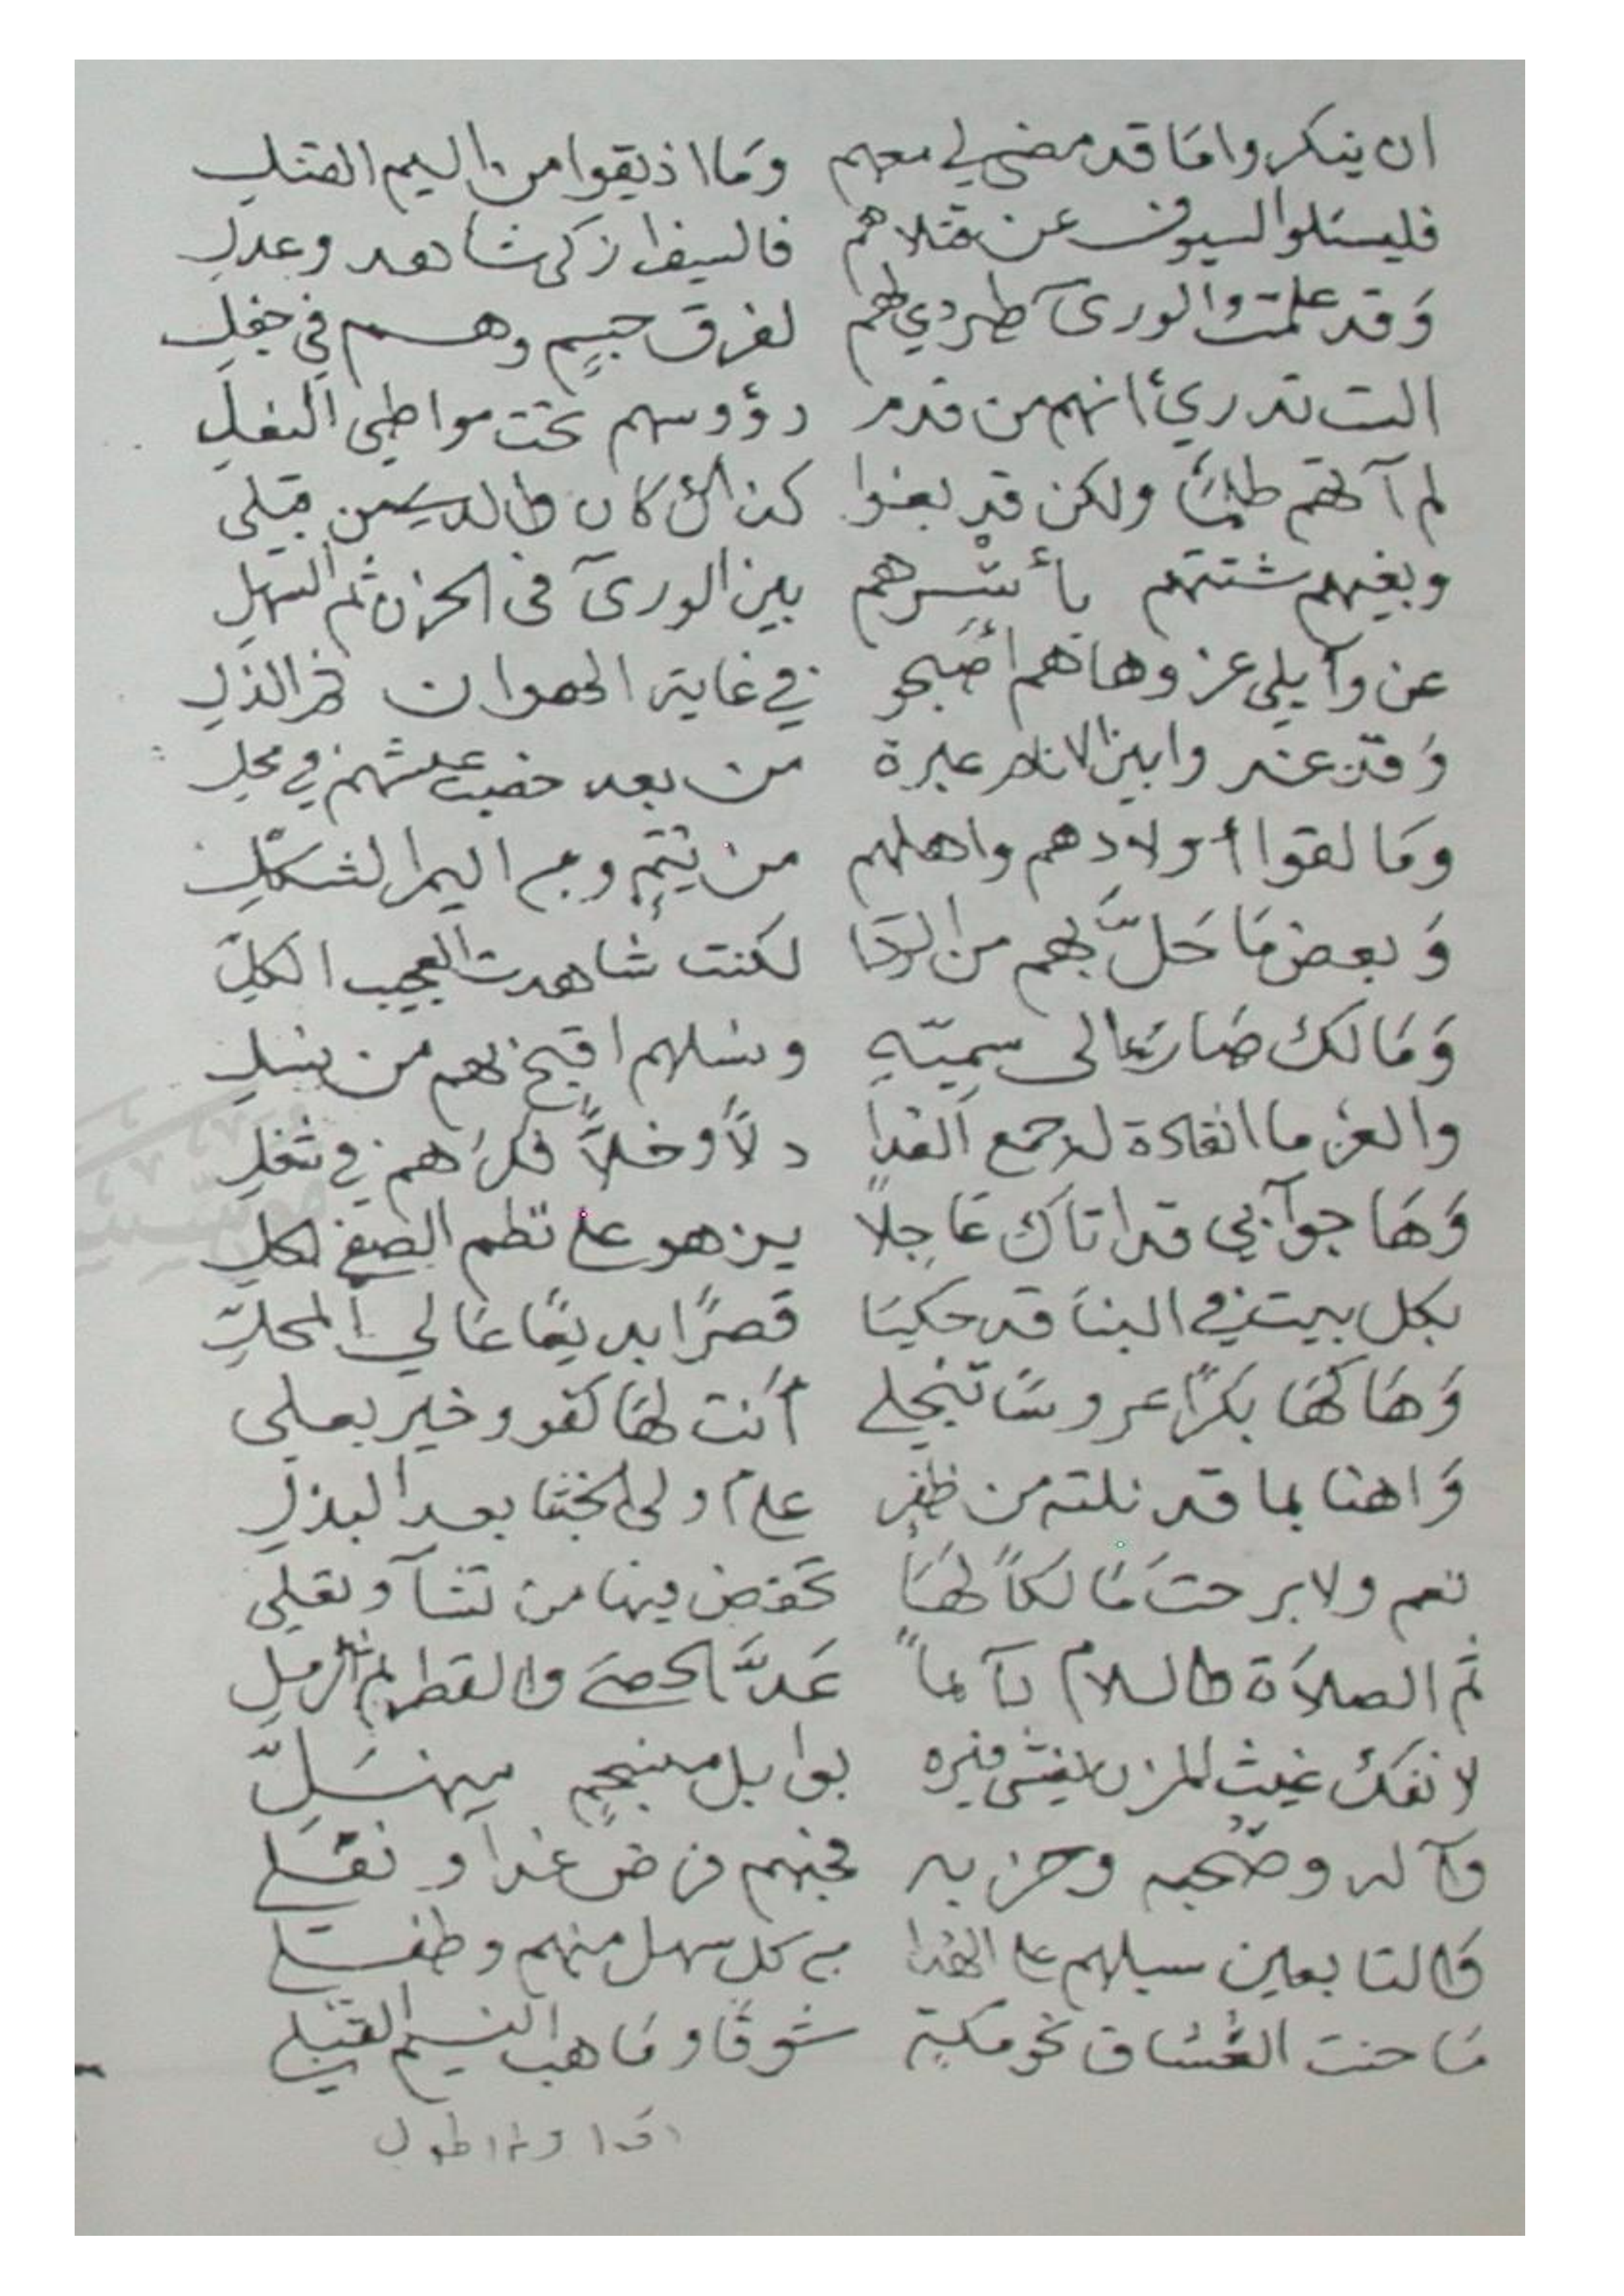 ان ينكروا ما قد مضى لي معهم وَمَا اذيقوا من اليم القتل
فليسئلوا السيوف عن قتلاهم فالسيف ازكى شاهد وعدل
وَقد علمتَ والورىَ طردي لهم لفرق جسيم وهم في جفل
الست تدري أنهم من قدم رؤوسهم تحت مواطي النعل
لم آتهم ظلمًا ولكن قد بغوا كذالك كان الدين قبلى
وبغيهم شتتهم بأسرهم بين الورىَ فى الحزن ثم السهل
عن وآيلى عز وها هم أصبحو في غاية الهوان ثم الذل
وَقد غدوا بين الانام عبرة من بعد خصب عيشهم في محل
ومَا لقوا أولادهم واهلهم من يتم ومن اليم الثكل
وَبعض مَا حَلَّ بهم من الردَا لكنت شاهدت العجيب الكلِّ
وَمَالك صَار إلى سميّه ونسلهم اقبح بهم من نسل
والعز ما انقادة له جمع الفدا دلاً وخلاً فكرهم في شغل
وَهَا جوآبي قد اتاك عَاجلاً يزهو على نظم الصفي الحلي
بكل بيت في البنا قد حكيَا قصرًا بديعًا عَالي المحلّ
وَهَاكهَا بكرًا عروسًا تنجلي أنت لهَا كفو وخير بعلى
وَاهنا بما قد نلته من ظفرٍ على أولي الخنا بعد البذل
نعم ولا برحتَ مَالكاً لهَا تخفض فيها من تشآ وتعلى
ثم الصلاَة والسلام دآئماً عَدَّ الحصىَ والقطر ثم الرمل
لا نفك غيث المزن يغشى قبره بوابل منسجمٍ منهَلِّ
وآله وصَحبه وحزبه فحبهم فرض غدا ونفلي
وَالتابعين سبيلهم على الهدا من كل سهل منهم وطفل
مَا حنت العُشاق نحو مكة شوقًا ومَا هب النسيم القبلي